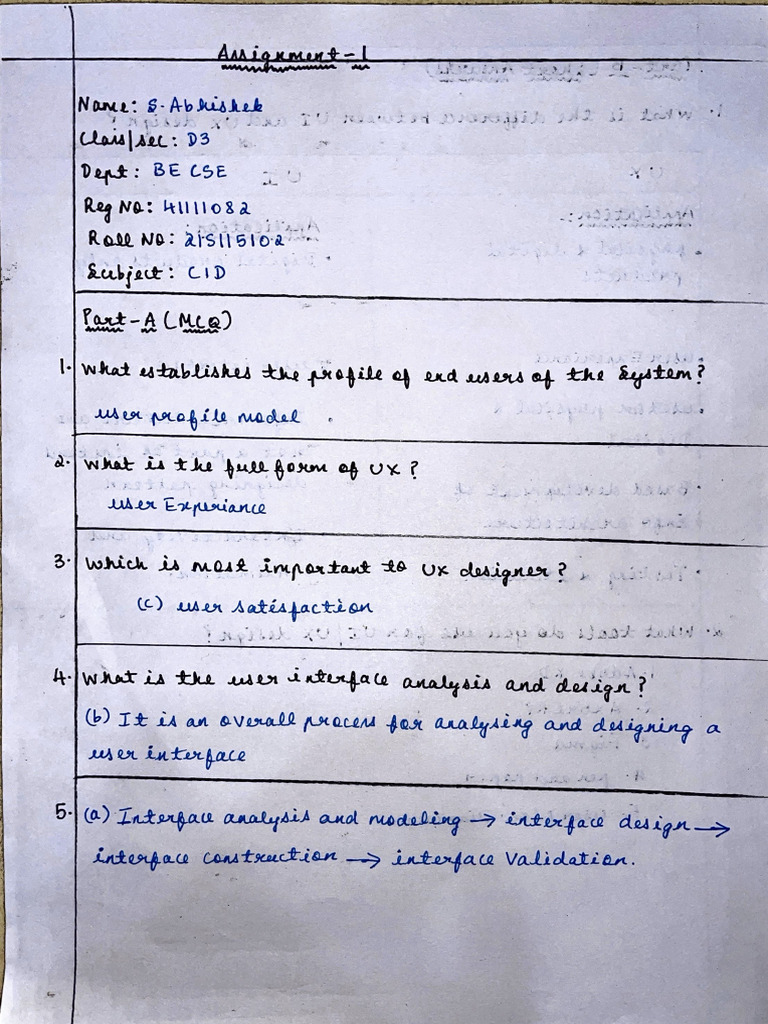 Assignment-1
Name: S.Abhishek
Class/sec: D3
Dept: BE CSE
Reg No: 41111082
Roll No: 21S115102
Subject: CID
Part-A (MCQ)
1. What establishes the profile of end users of the System?
user profile model
2. What is the full form of UX?
user Experiance
3. Which is most important to UX designer?
(c) user satisfaction
4. What is the user interface analysis and design?
(b) It is an overall process for analysing and designing a
user interface
5. (a) Interface analysis and modeling → interface design →
interface construction → interface Validation.